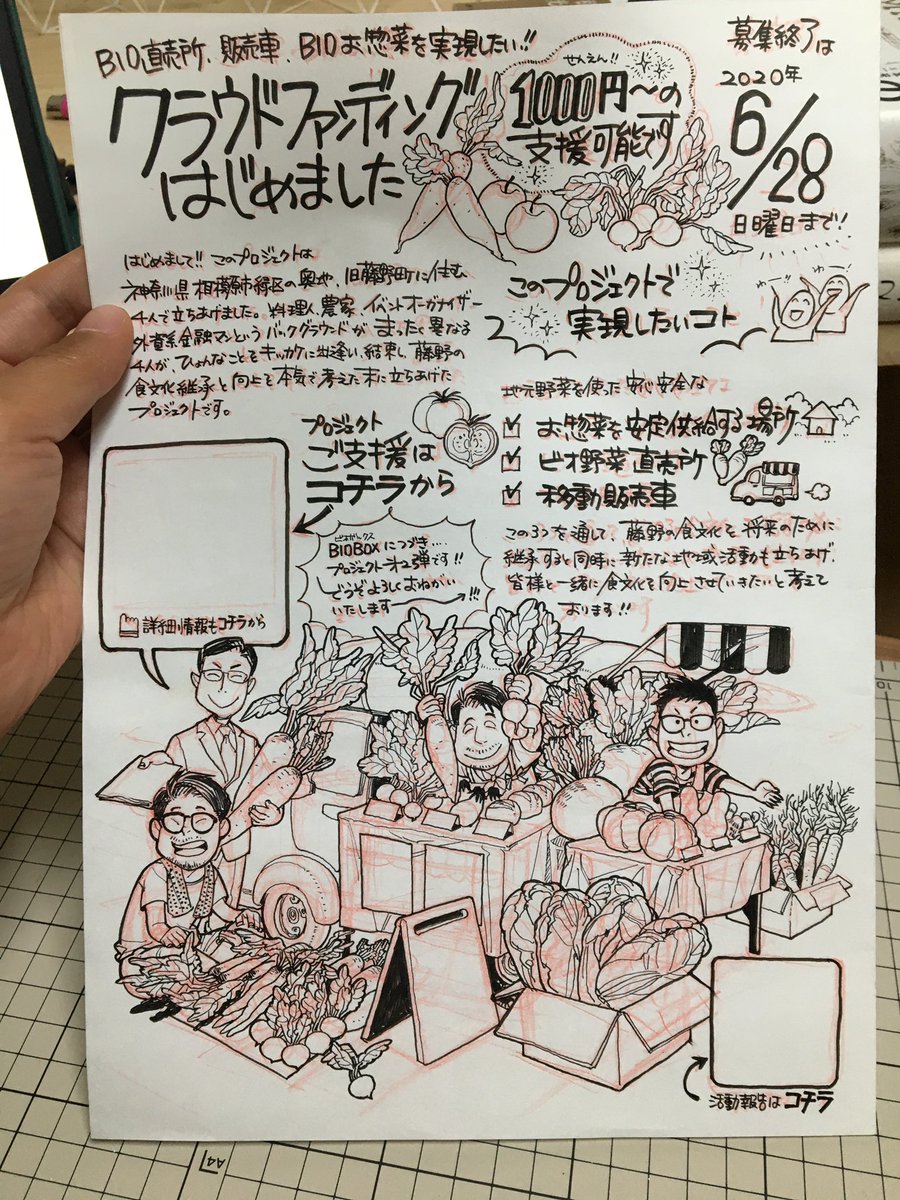 BIO直売所、販売車、BIOお惣菜を実現したい!!
クラウドファンディング
はじめました
せんえん!!
1000円〜の
支援可能です
募集終了は
2020年
6/28
日曜日まで!
はじめまして!! このプロジェクトは
神奈川県相模原市緑区の奥地、旧藤野町に住む
4人で立ちあげました。料理人、農家、イベントオーガナイザー
外資系金融マンというバックグラウンドがまったく異なる
4人が、ひょんなことをキッカケに出逢い、結束し、藤野の
食文化継承と向上を本気で考えた末に立ちあげた
プロジェクトです。
このプロジェクトで
実現したいコト
地元野菜を使った安心安全な
お惣菜を安定供給する場所
ビオ野菜直売所
移動販売車
この3つを通して、藤野の食文化を将来のために
継承すると同時に新たな地域活動も立ちあげ、
皆様と一緒に食文化を向上させていきたいと考えて
おります!!
プロジェクト
ご支援は
コチラから
詳細情報もコチラから
ビオボックス
BIOBOXにつづき....
プロジェクト第2弾です!!
どうぞよろしくおねがい
いたします!!!
活動報告はコチラ
A4